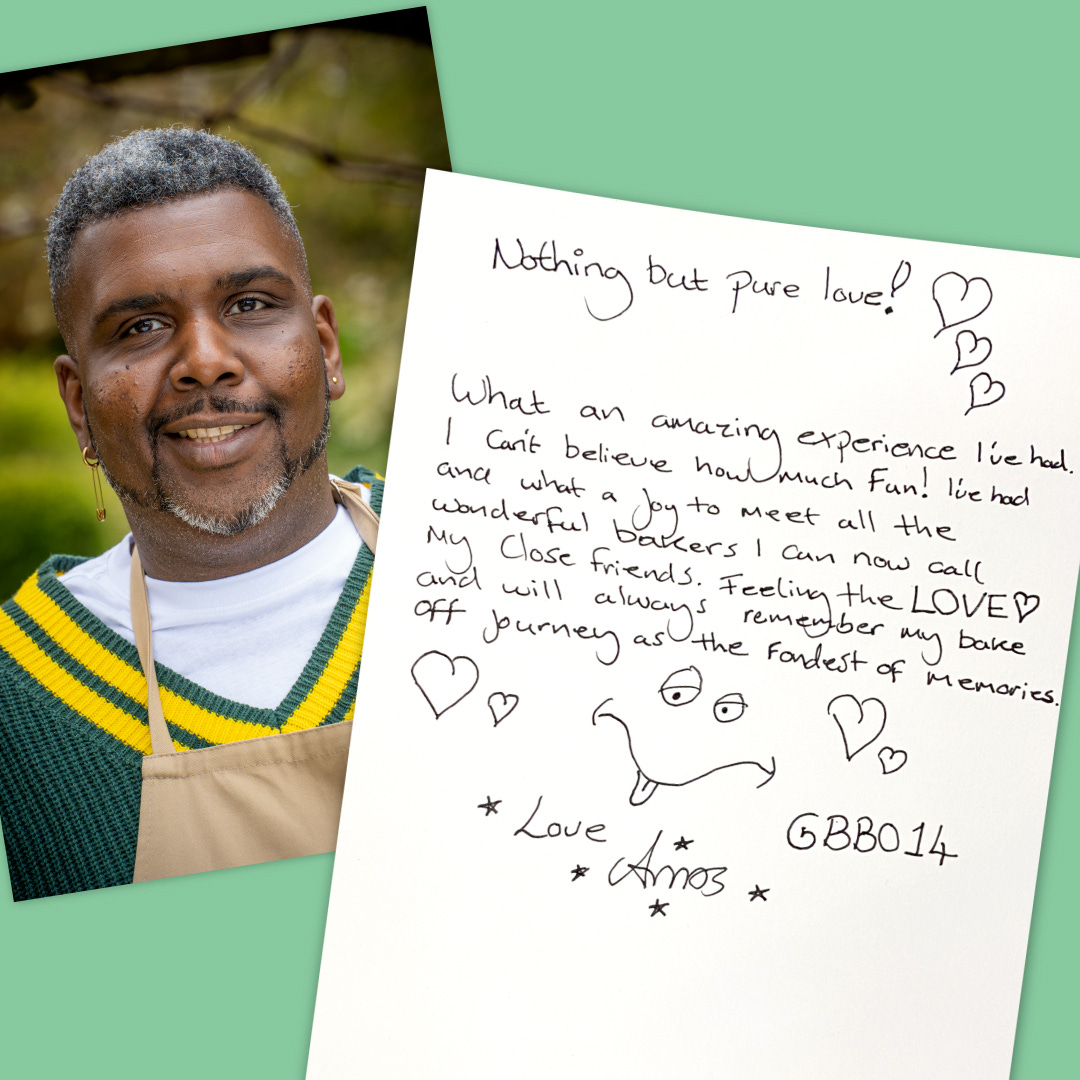 Nothing but pure love!
What an amazing experience I've had.
I can't believe how much fun! I've had
and what a joy to meet all the
wonderful bakers I can now call
my close friends. Feeling the LOVE
and will always remember my bake
off journey as the fondest of memories.
Love
Amos
GBBO14